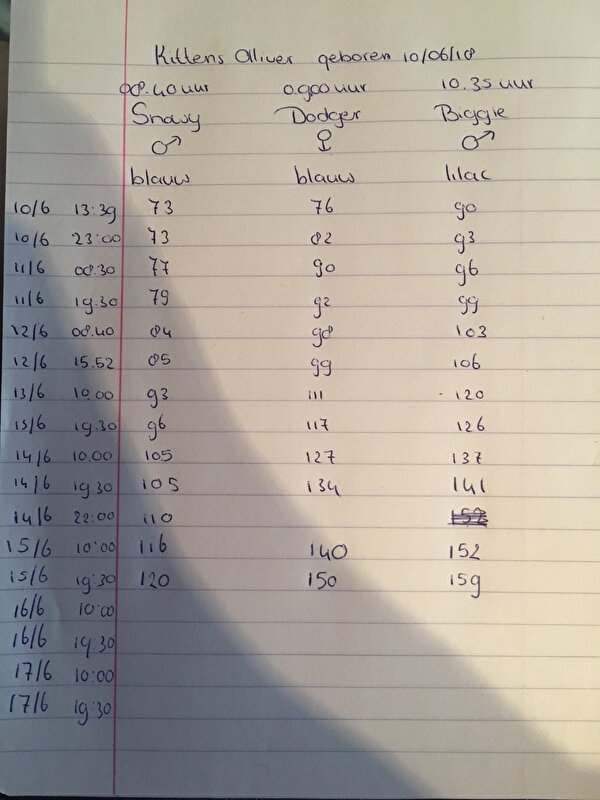 Kittens Oliver geboren 10/06/18
08.40 uur 0.900 uur 10.35 uur
Snowy Dodger Biggie
♂ ♀ ♂
blauw blauw lilac
10/6 13:39 73 76 90
10/6 23:00 73 82 93
11/6 08.30 77 90 96
11/6 19.30 79 92 99
12/6 08.40 84 98 103
12/6 15.52 85 99 106
13/6 10.00 93 111 120
13/6 19.30 96 117 126
14/6 10.00 105 127 137
14/6 19 30 105 134 141
14/6 22:00 110
15/6 10:00 116 140 152
15/6 19:30 120 150 159
16/6 10:00
16/6 19 30
17/6 10:00
17/6 19:30